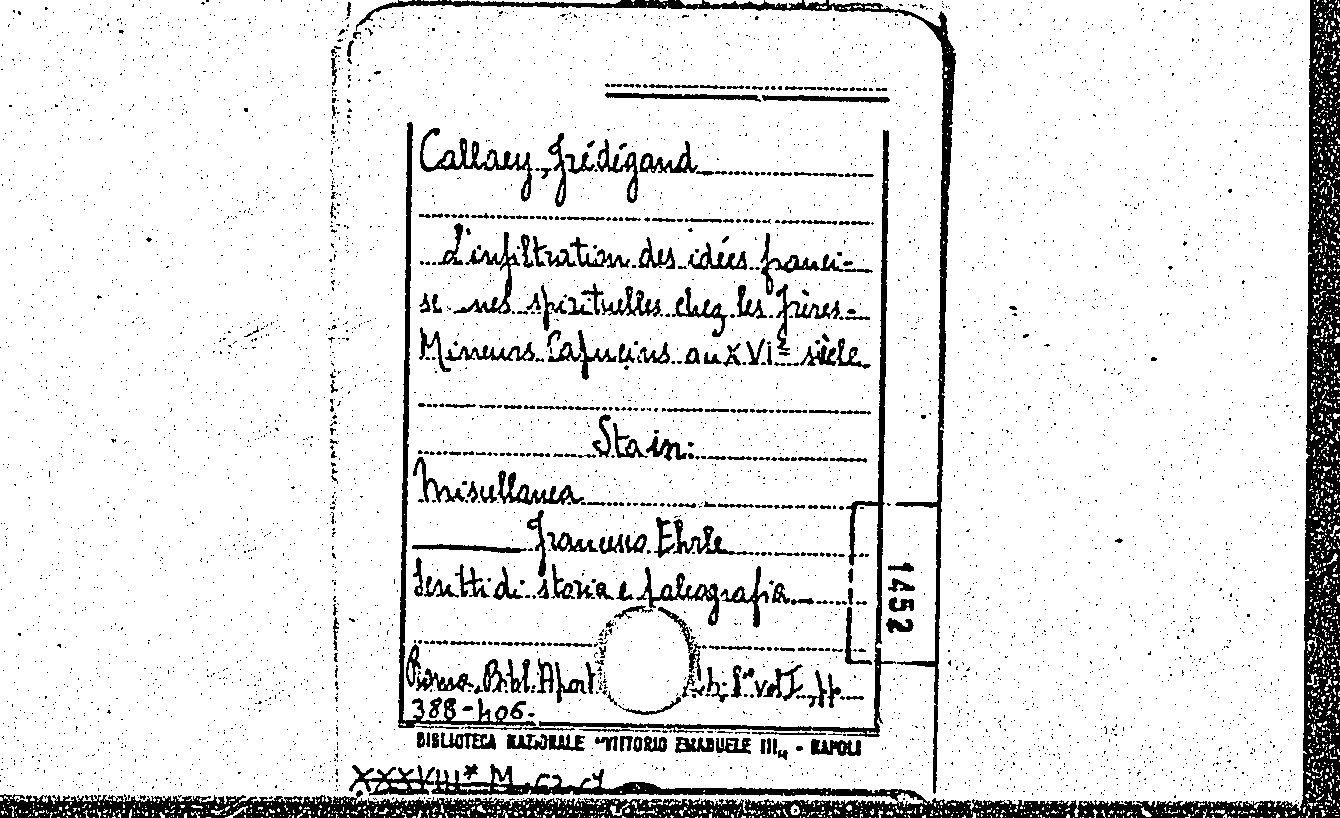 Callaey, Frédégand
L'infiltration des idées franci-
sc nes spirituelles chez les Frères-
Mineurs Capucins au XVIe siècle
Sta in:
Miscellanea
Francesco Ehrle
Scritti di storia e paleografia
Roma, Bibl. Apost 8° vol I, pp.
388-406.
1452
BIBLIOTECA NAZIONALE "VITTORIO EMANUELE III„ - NAPOLI
XXXVIII* M